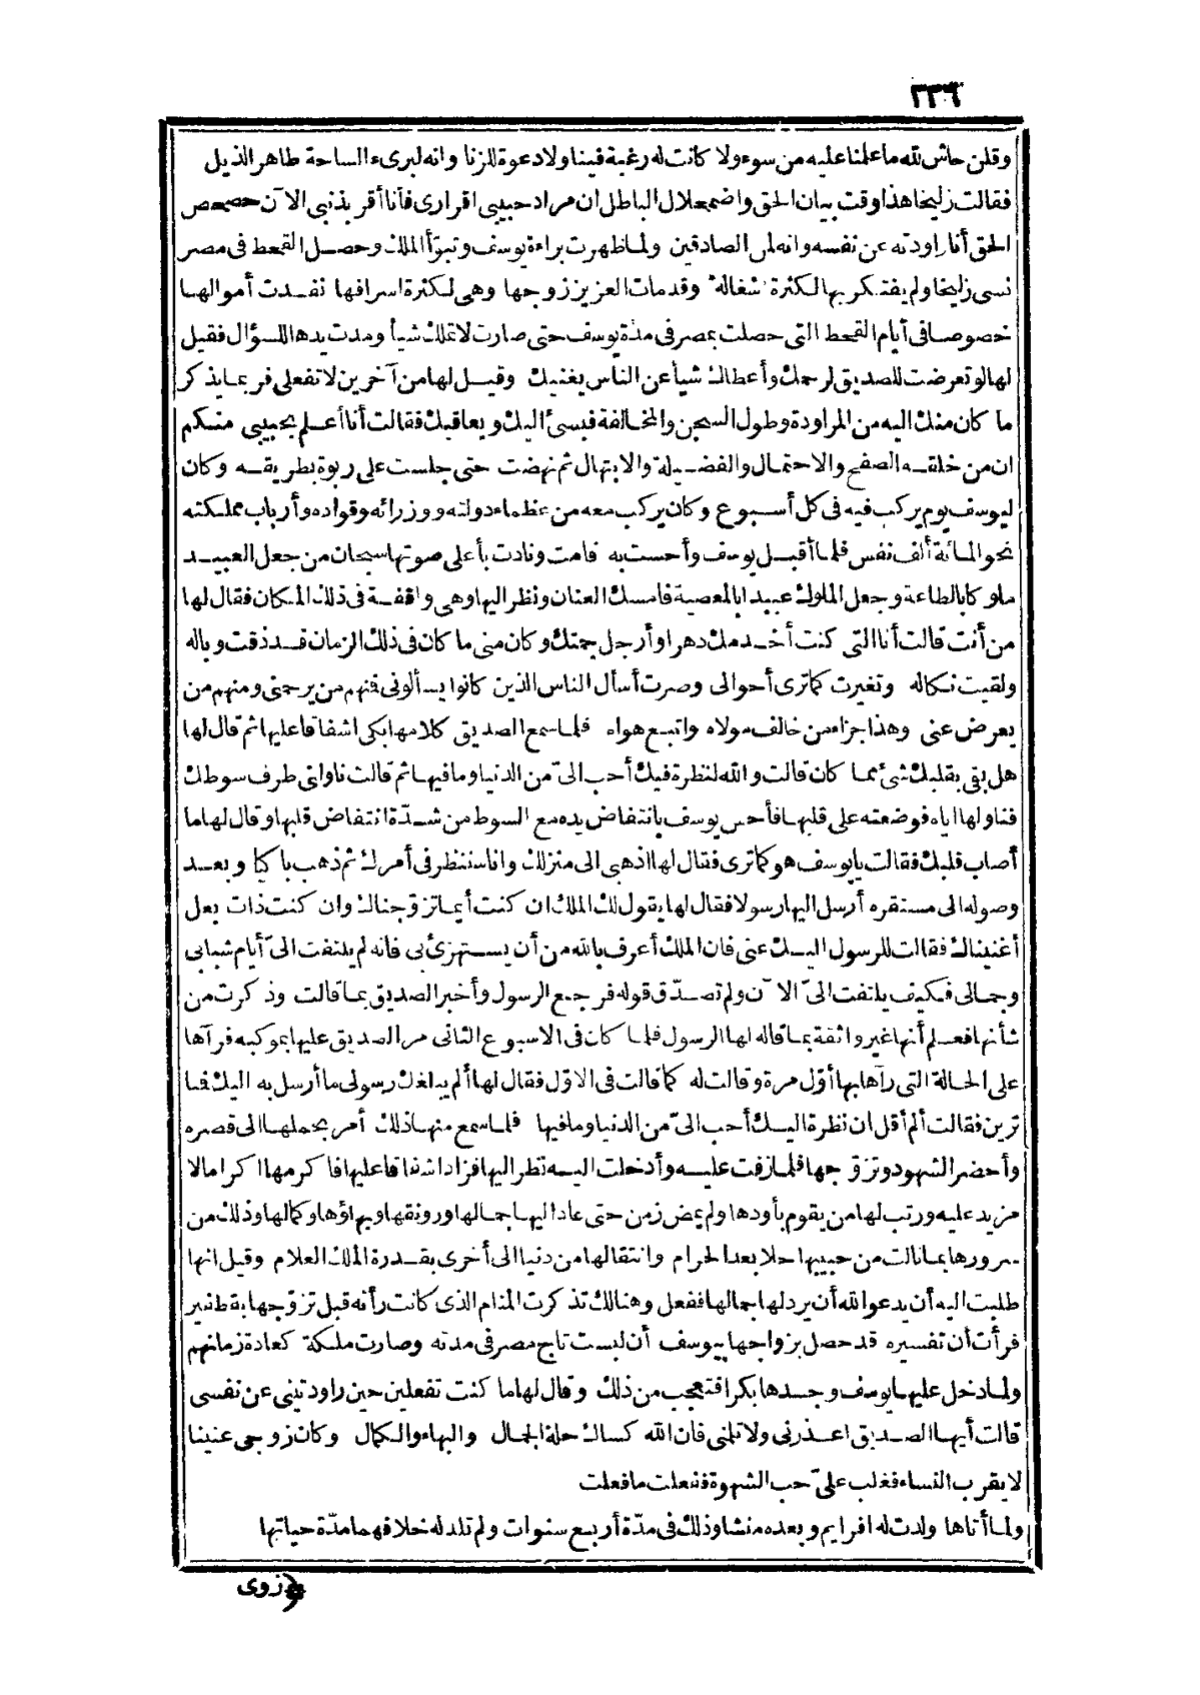 ٢٣٦
وقلن حاش لله ماعلمنا عليه من سوء ولا كانت له رغبة فينا ولا دعوة للزنا وانه لبرىء الساحة طاهر الذيل
فقالت زليخا هذا وقت بيان الحق واضمحلال الباطل ان مراد حبيبى اقرارى فأنا أقر بذنبى الآن حصحص
الحق أنا راودته عن نفسه وانه لمن الصادقين ولما ظهرت براءة يوسف وتبوّأ الملك وحصل القحط فى مصر
نسى زليخا ولم يفتكر بها لكثرة شغاله وقد مات العزيز زوجها وهى لكثرة اسرافها نفدت أموالها
خصوصا فى أيام القحط التى حصلت بمصر فى مدّة يوسف حتى صارت لا تملك شيأ ومدت يدها للسؤال فقيل
لها لو تعرضت للصديق لرحمك وأعطاك شيأ عن الناس يغنيك وقيل لها من آخرين لا تفعلى فربما يذكر
ما كان منك اليه من المراودة وطول السجن والمخالفة فيسئ اليك ويعاقبك فقالت أنا أعلم بحبيبى منكم
ان من خلقه الصفح والاحتمال والفضيلة والابتهال ثم نهضت حتى جلست على ربوة بطريقه وكان
ليوسف يوم يركب فيه فى كل أسبوع وكان يركب معه من عظماء دولته ووزرائه وقواده وأرباب مملكته
نحو المائة ألف نفس فلما أقبل يوسف وأحست به قامت ونادت بأعلى صوتها سبحان من جعل العبيد
ملوكا بالطاعة وجعل الملوك عبيدا بالمعصية فامسك العنان ونظر اليها وهى واقفة فى ذلك المكان فقال لها
من أنت قالت أنا التى كنت أخدمك دهرا وأرجل جمتك وكان منى ما كان فى ذلك الزمان قد ذقت وباله
ولقيت نكاله وتغيرت كما ترى أحوالى وصرت أسأل الناس الذين كانوا يسألونى فمنهم من يرحمنى ومنهم من
يعرض عنى وهذا جزاء من خالف مولاه واتبع هواه فلما سمع الصديق كلامها بكى اشفاقا عليها ثم قال لها
هل بقى بقلبك شئ مما كان قالت والله لنظرة فيك أحب الىّ من الدنيا وما فيها ثم قالت ناولنى طرف سوطك
فناولها اياه فوضعته على قلبها فأحس يوسف بانتفاض يده مع السوط من شدّة انتفاض قلبها وقال لها ما
أصاب قلبك فقالت يا يوسف هو كما ترى فقال لها اذهبى الى منزلك وانا سننظر فى أمرك ثم ذهب باكيا وبعد
وصوله الى مستقره أرسل اليها رسولا فقال لها يقول لك الملك ان كنت أيما تزوّجناك وان كنت ذات بعل
أغنيناك فقالت للرسول اليك عنى فان الملك أعرف بالله من أن يستهزئ بى فانه لم يلتفت الىّ أيام شبابى
وجمالى فكيف يلتفت الىّ الآن ولم تصدّق قوله فرجع الرسول وأخبر الصديق بما قالت وذكرت من
شأنها فعلم أنها غير واثقة بما قاله لها الرسول فلما كان فى الاسبوع الثانى مر الصديق عليها بموكبه فرآها
على الحالة التى رآها بها أوّل مرة وقالت له كما قالت فى الاوّل فقال لها ألم يبلغك رسولى ما أرسل به اليك فما
ترين فقالت ألم أقل ان نظرة اليك أحب الىّ من الدنيا وما فيها فلما سمع منها ذلك أمر بحملها الى قصره
وأحضر الشهود وتزوّجها فلما زفت عليه وأدخلت اليه نظر اليها فزاد اشفاقا عليها فاكرمها اكراما لا
مزيد عليه ورتب لها من يقوم بأودها ولم يمض زمن حتى عاد اليها جمالها ورونقها وبهاؤها وكمالها وذلك من
سرورها بما نالت من حبيبها حلا بعد الحرام وانتقالها من دنيا الى أخرى بقدرة الملك العلام وقيل انها
طلبت اليه أن يدعو الله أن يرد لها جمالها ففعل وهنالك تذكرت المنام الذى كانت رأته قبل تزوّجها بقطفير
فرأت أن تفسيره قد حصل بزواجها بيوسف أن لبست تاج مصر فى مدته وصارت ملكة كعادة زمانهم
ولما دخل عليها يوسف وجسدها بكرا فتعجب من ذلك وقال لها ما كنت تفعلين حين راودتينى عن نفسى
قالت أيها الصديق اعذرنى ولا تلمنى فان الله كساك حلة الجمال والبهاء والكمال وكان زوجى عنينا
لا يقرب النساء فغلب علىّ حب الشهوة ففعلت ما فعلت
ولما أتاها ولدت له افرايم وبعده منشا وذلك فى مدّة أربع سنوات ولم تلد له خلافهما مدّة حياتها
﴿زوى